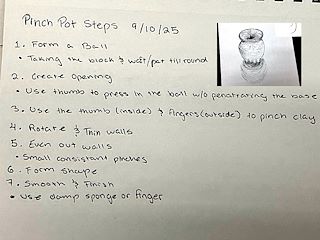 Pinch Pot Steps 9/10/25
1. Form a Ball
• Taking the block & wait/pat till round
2. Create Opening
• Use thumb to press in the ball w/o penatrating the base
3. Use the thumb (inside) & fingers (outside) to pinch clay
4. Rotate & Thin walls
5. Even out walls
• Small consistant pinches
6. Form shape
7. Smooth & Finish
• Use damp sponge or finger